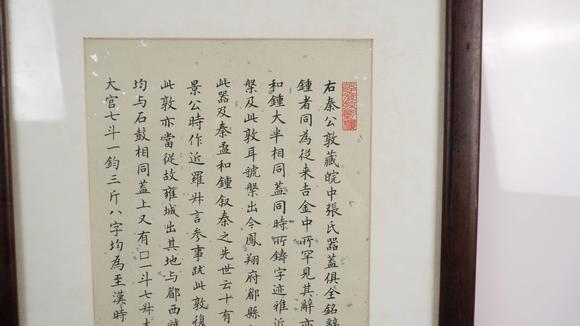 右秦公敦藏皖中張氏器蓋俱全銘辭
鍾者同為從来吉金中所罕見其辭亦
和鍾大半相同蓋同時所鑄字迹雅近
槃及此敦耳號槃出今鳳翔府郿縣
此器及秦盄和鍾叙秦之先世云十有
景公時作近羅叔言參事跋此敦復
此敦亦當從故雍城出其地与郿西
均与石鼓相同蓋上又有□一斗七升
大官七斗一鈞三斤八字均為至漢時